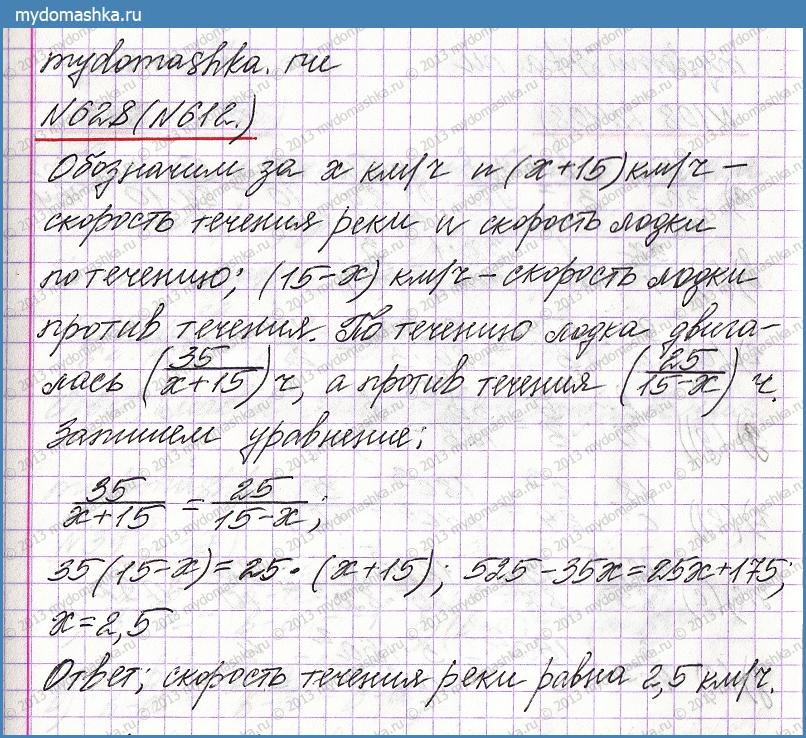 mydomashka.ru
mydomashka.ru
N628(N612.)
Обозначим за x км/ч и (x+15) км/ч –
скорость течения реки и скорость лодки
по течению; (15-x) км/ч – скорость лодки
против течения. По течению лодка двига-
лась (35/(x+15)) ч, а против течения (25/(15-x)) ч.
Запишем уравнение;
35/(x+15) = 25/(15-x);
35(15-x)=25·(x+15); 525-35x=25x+175;
x=2,5
Ответ; скорость течения реки равна 2,5 км/ч.
© 2013 mydomashka.ru